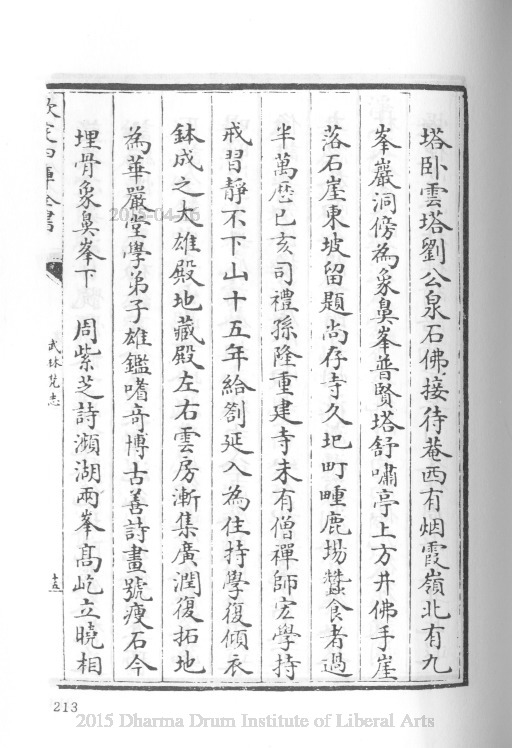 塔卧雲塔劉公泉石佛接待菴西有烟霞嶺北有九
峯巖洞傍為象鼻峯普賢塔舒嘯亭上方井佛手崖
落石崖東坡留題尚存寺久圮町畽鹿場蠶食者過
半萬歴已亥司禮孫隆重建寺未有僧禪師宏學持
戒習静不下山十五年給劄延入為住持學復傾衣
鉢成之大雄殿地藏殿左右雲房漸集廣潤復拓地
為華嚴堂學弟子雄鑑嗜奇博古善詩畫號瘦石今
埋骨象鼻峯下 周紫芝詩瀕湖兩峯髙屹立曉相
欽定四庫全書
武林梵志
213
2015 Dharma Drum Institute of Liberal Arts